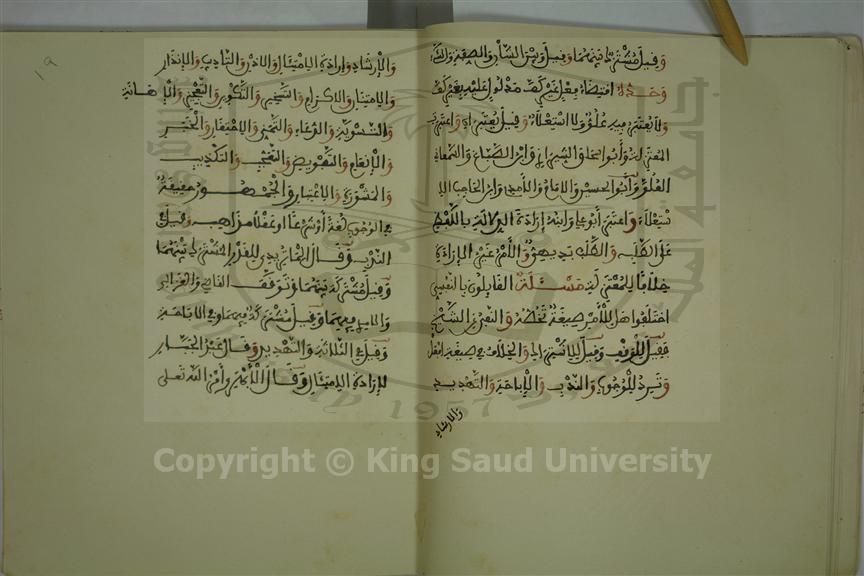 وقيل مشترك بينهما وقيل وبين الشأن والصفة والشيء
وحده اقتضاء فعل غير كف مدلول عليه بغير كف
ولا يعتبر فيه علو ولا استعلاء وقيل يعتبران واعتبرت
المعتزلة وأبو إسحاق الشيرازي وابن الصباغ والسمعاني
العلو وأبو الحسين والإمام والآمدي وابن الحاجب الا
ستعلاء واعتبر أبو علي وابنه إرادة الدلالة باللفظ
على الطلب والطلب بديهي والأمر غير الإرادة
خلافا للمعتزلة مسئلة القائلون بالنفسي
اختلفوا هل للأمر صيغة تخصه والنفي عن الشيخ
فقيل للوقف وقيل للاشتراك والخلاف في صيغة افعل
وترد للوجوب والندب والإباحة والتهديد
والارشاد
والإرشاد وإرادة الامتثال والاذن والتأديب والإنذار
والامتنان والإكرام والتسخير والتكوين والتعجيز والإهانة
والتسوية والدعاء والتمني والاحتقار والخبر
والإنعام والتفويض والتعجب والتكذيب
والمشورة والاعتبار والجمهور حقيقة
في الوجوب لغة أو شرعا أو عقلا مذاهب وقيل في
الندب وقال الماتريدي للقدر المشترك بينهما
وقيل مشتركة بينهما وتوقف القاضي والغزالي
والآمدي فيهما وقيل مشتركة فيهما وفي الإباحة
وقيل في الثلاثة والتهديد وقال عبد الجبار
لإرادة الامتثال وقال الأبهري وأمر الله تعلى
١٩
جامعة
1957
Copyright © King Saud University